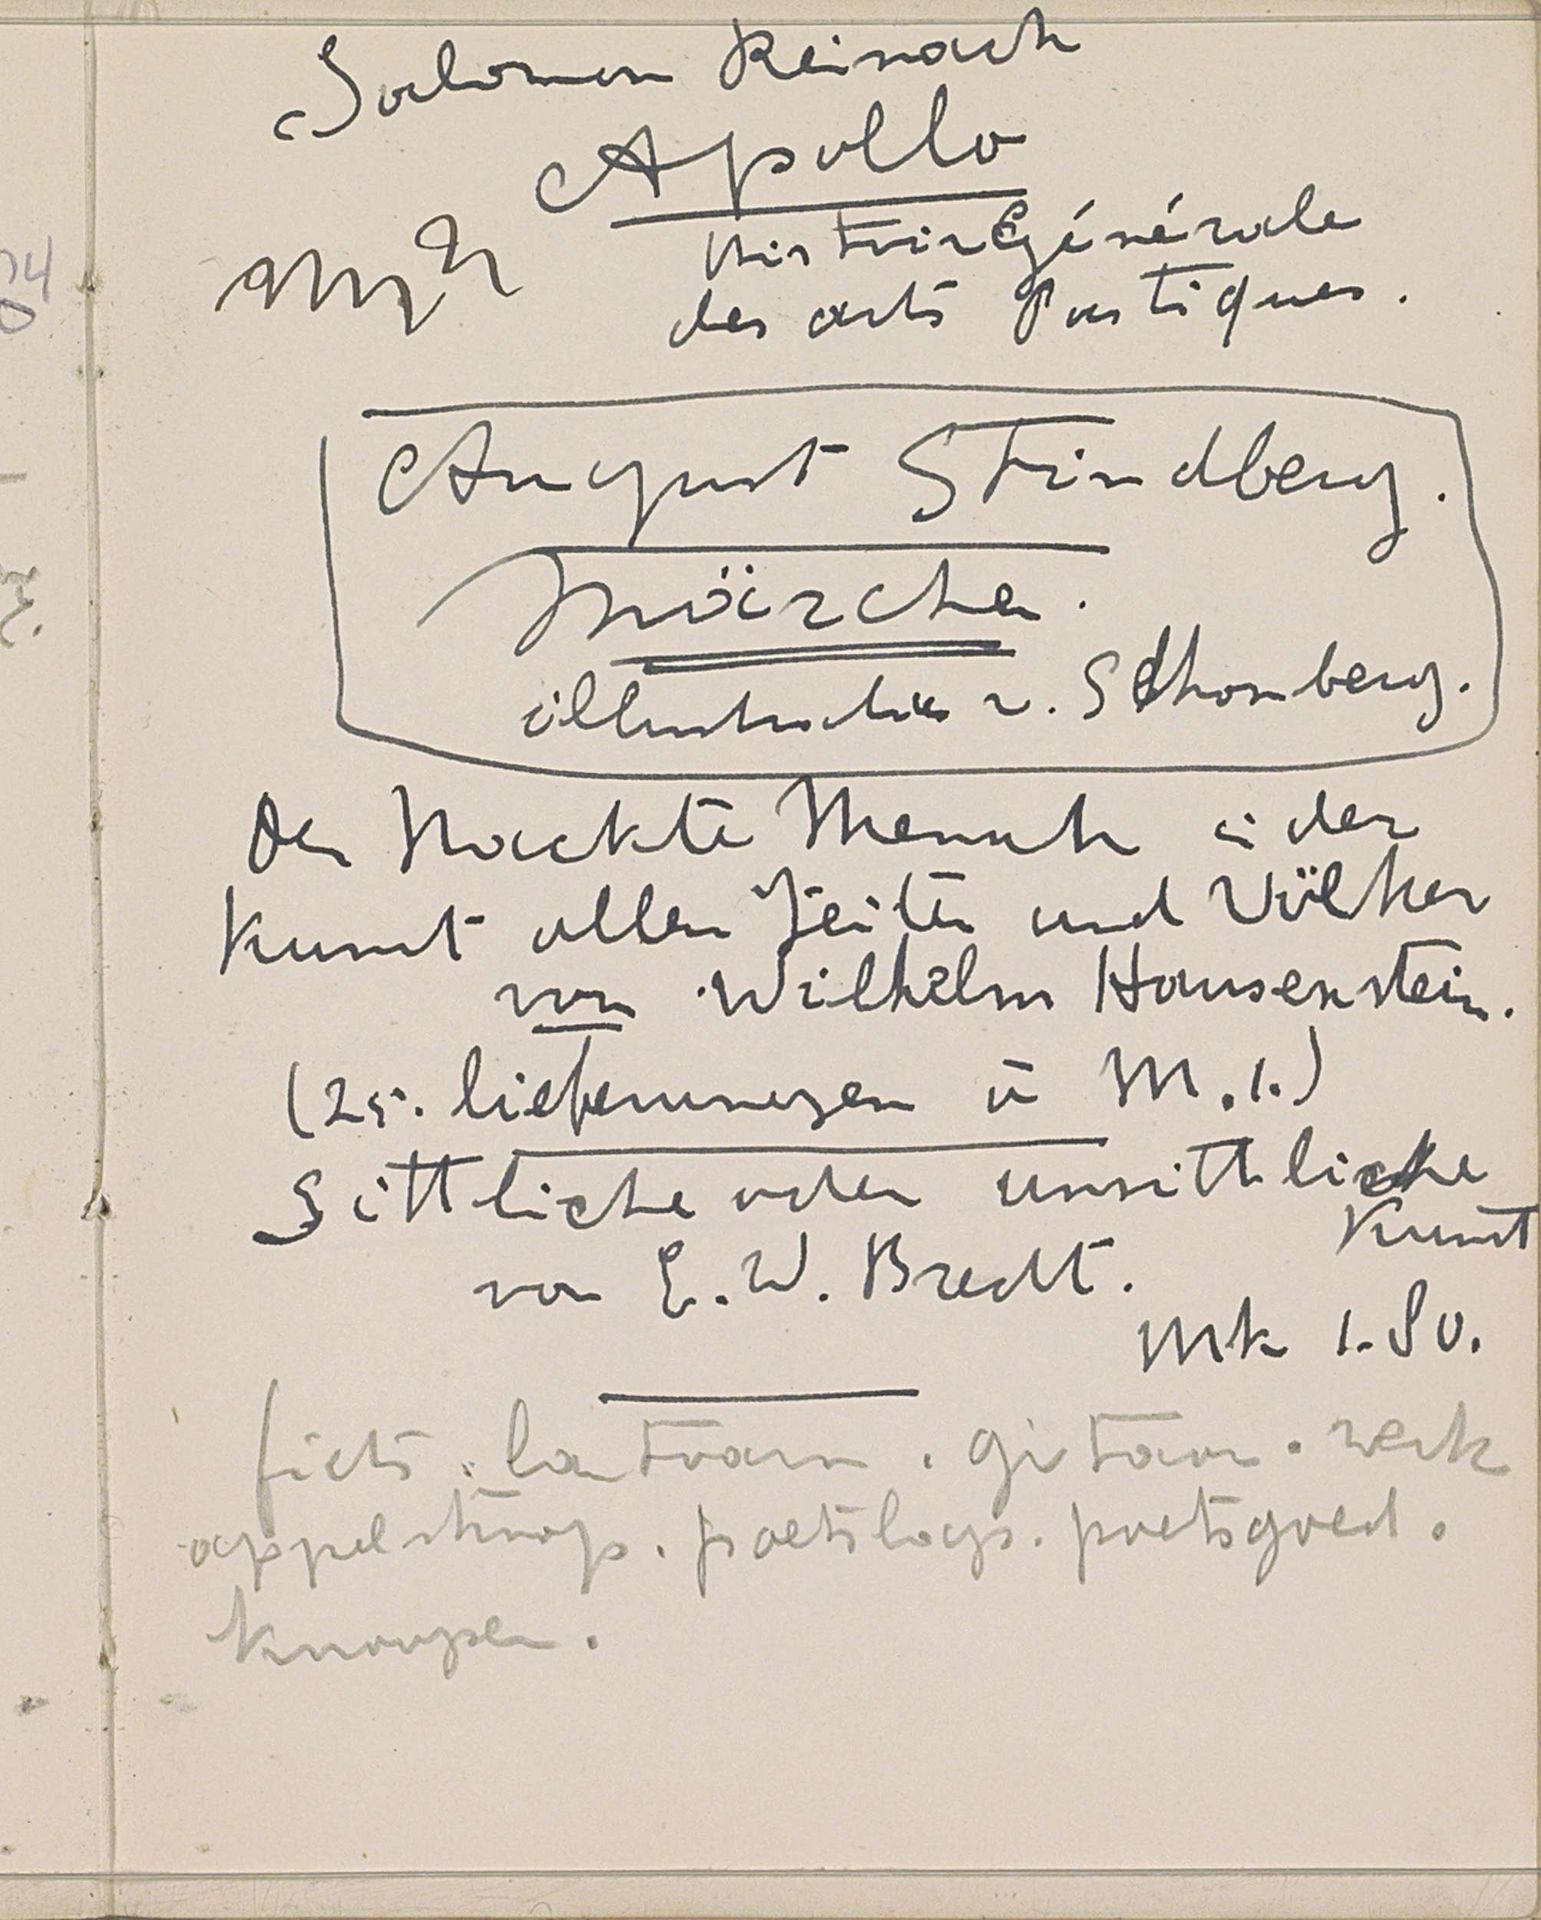 Salomon Reinach
Apollo
Histoire Générale
des arts Plastiques.
August Strindberg.
Märchen.
illustraties v. Schonberg.
Der Nackte Mensch i der
Kunst aller Zeiten und Völker
von Wilhelm Hausenstein.
(25. lieferungen à M.1.)
Sittliche oder unsittliche
Kunst
von E.W. Bredt.
Mk 1.80.
fiets. lantaarn. gitaar. werk
appelstroop. poetslaps. poetsgoed.
knoopen.